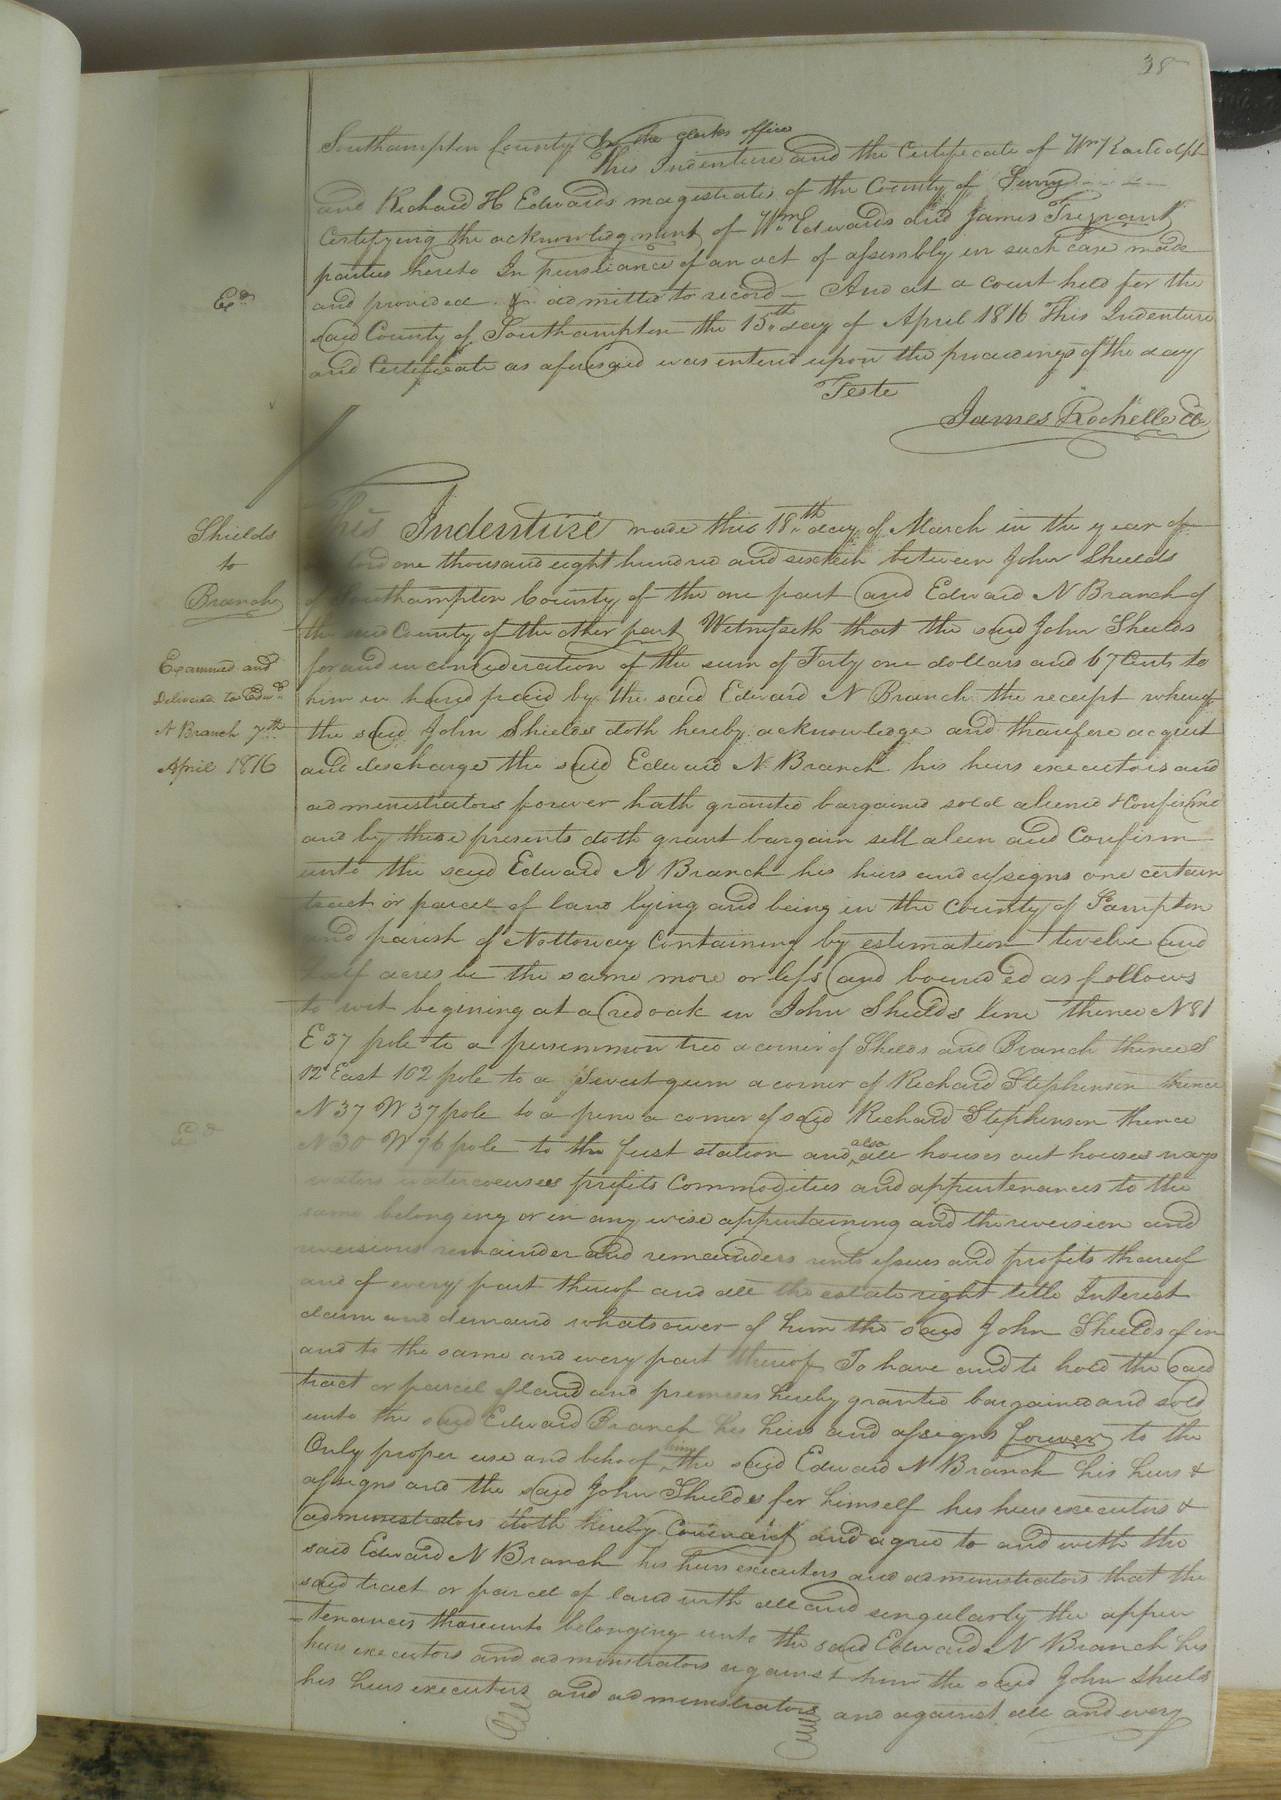 38
Southampton County In the clerks office
This Indenture and the Certificate of Wm Randolph
and Richard H Edwards magistrates of the County of Surry
Certifying the acknowledgment of Wm Edwards and James Trezvant
parties hereto In pursuance of an act of assembly in such case made
and provided is admitted to record – And at a court held for the
said County of Southampton the 15th day of April 1816 This Indenture
and Certificate as aforesaid was entered upon the proceedings of the day
Teste
James Rochelle Cl
Exd
Shields
to
Branch
Examined and
Delivered to Edwd
N Branch 7th
April 1816
This Indenture made this 18th day of March in the year of
lord one thousand eight hundred and sixteen between John Shields
of Southampton County of the one part and Edward N Branch of
the said County of the other part Witnesseth that the said John Shields
for and in consideration of the sum of Forty one dollars and 67 Cents to
him in hand paid by the said Edward N Branch the receipt whereof
the said John Shields doth hereby acknowledge and therefore acquit
and discharge the said Edward N Branch his heirs executors and
administrators forever hath granted bargained sold aliened & Confirmed
and by these presents doth grant bargain sell alien and Confirm
unto the said Edward N Branch his heirs and assigns one certain
tract or parcel of land lying and being in the County of Sampton
and parish of Nottoway Containing by estimation twelve and
half acres be the same more or less and bounded as follows
to wit begining at a red oak in John Shields line thence N 81
E 57 pole to a persimmon tree a corner of Shields and Branch thence S
12 East 102 pole to a Sweetgum a corner of Richard Stephenson thence
N 37 W 37 pole to a pine a corner of said Richard Stephenson thence
N 30 W 76 pole to the first station and also all houses out houses ways
waters watercourses profits Commodities and appurtenances to the
same belonging or in any wise appurtaining and the reversion and
reversions remainder and remainders rents issues and profits thereof
and of every part thereof and all the estate right title Interest
claim and demand whatsoever of him the said John Shields of in
and to the same and every part thereof To have and to hold the said
tract or parcel of land and premises hereby granted bargained and sold
unto the said Edward Branch his heirs and assigns forever to the
Only proper use and behoof him the said Edward N Branch his heirs &
assigns and the said John Shields for himself his heirs executors &
administrators doth hereby Covenant and agree to and with the
said Edward N Branch his heirs executors and administrators that the
said tract or parcel of land with all and singularly the appur
=tenances thereunto belonging unto the said Edward N Branch his
heirs executors and administrators against him the said John Shields
his heirs executors and administrators and against all and every